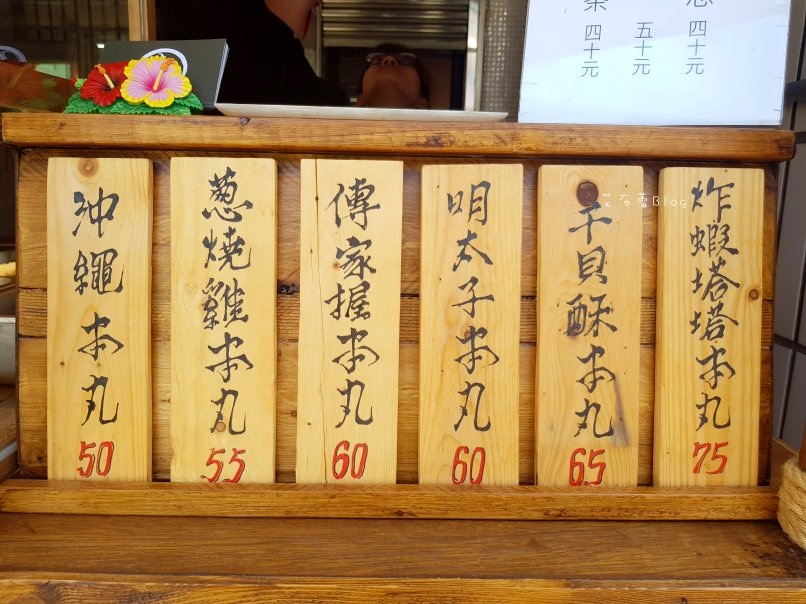 四十元
五十元
四十元
沖繩本丸
50
葱燒雞本丸
55
傳家握本丸
60
明太子本丸
60
干貝酥本丸
65
炸蝦塔塔本丸
75
艾布蕾Blog